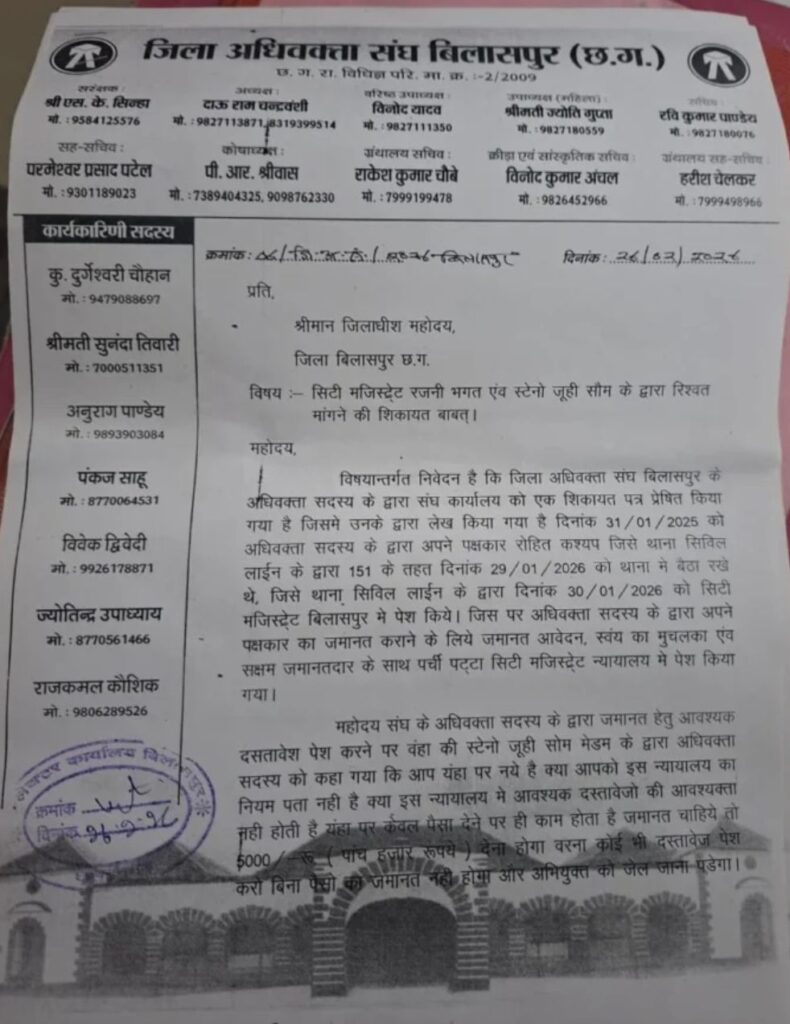 जिला अधिवक्ता संघ बिलासपुर (छ.ग.)
छ. ग. रा. विधिज्ञ परि. मा. क्र. :-2/2009
संरक्षक :
श्री एस. के. सिन्हा
मो. : 9584125576
अध्यक्ष :
दाऊ राम चन्द्रवंशी
मो. : 9827113871, 8319399514
वरिष्ठ उपाध्यक्ष :
विनोद यादव
मो. : 9827111350
उपाध्यक्ष (महिला) :
श्रीमती ज्योति गुप्ता
मो. : 9827180559
सचिव :
रवि कुमार पाण्डेय
मो. : 9827180076
सह-सचिव :
परमेश्वर प्रसाद पटेल
मो. : 9301189023
कोषाध्यक्ष :
पी. आर. श्रीवास
मो. : 7389404325, 9098762330
ग्रंथालय सचिव :
राकेश कुमार चौबे
मो. : 7999199478
क्रीड़ा एवं सांस्कृतिक सचिव :
विनोद कुमार अंचल
मो. : 9826452966
ग्रंथालय सह-सचिव :
हरीश चेलकर
मो. : 7999498966
कार्यकारिणी सदस्य
कु. दुर्गेश्वरी चौहान
मो. : 9479088697
श्रीमती सुनंदा तिवारी
मो. : 7000511351
अनुराग पाण्डेय
मो. : 9893903084
पंकज साहू
मो. : 8770064531
विवेक द्विवेदी
मो. : 9926178871
ज्योतिन्द्र उपाध्याय
मो. : 8770561466
राजकमल कौशिक
मो. : 9806289526
क्रमांक :
दिनांक :
प्रति,
श्रीमान जिलाधीश महोदय,
जिला बिलासपुर छ.ग.
विषय :– सिटी मजिस्ट्रेट रजनी भगत एंव स्टेनो जूही सौम के द्वारा रिश्वत
मांगने की शिकायत बाबत्।
महोदय,
विषयान्तर्गत निवेदन है कि जिला अधिवक्ता संघ बिलासपुर के
अधिवक्ता सदस्य के द्वारा संघ कार्यालय को एक शिकायत पत्र प्रेषित किया
गया है जिसमे उनके द्वारा लेख किया गया है दिनांक 31/01/2025 को
अधिवक्ता सदस्य के द्वारा अपने पक्षकार रोहित कश्यप जिसे थाना सिविल
लाईन के द्वारा 151 के तहत दिनांक 29/01/2026 को थाना मे बैठा रखे
थे, जिसे थाना सिविल लाईन के द्वारा दिनांक 30/01/2026 को सिटी
मजिस्ट्रेट बिलासपुर मे पेश किये। जिस पर अधिवक्ता सदस्य के द्वारा अपने
पक्षकार का जमानत कराने के लिये जमानत आवेदन, स्वंय का मुचलका एंव
सक्षम जमानतदार के साथ पर्ची पट्टा सिटी मजिस्ट्रेट न्यायालय मे पेश किया
गया।
महोदय संघ के अधिवक्ता सदस्य के द्वारा जमानत हेतु आवश्यक
दसतावेश पेश करने पर वंहा की स्टेनो जूही सोम मेडम के द्वारा अधिवक्ता
सदस्य को कहा गया कि आप यंहा पर नये है क्या आपको इस न्यायालय का
नियम पता नही है क्या इस न्यायालय मे आवश्यक दस्तावेजो की आवश्यक्ता
नही होती है यंहा पर केवल पैसा देने पर ही काम होता है जमानत चाहिये तो
5000/–रू ( पांच हजार रूपये ) देना होगा वरना कोई भी दस्तावेज पेश
करो बिना पैसो का जमानत नही होगा और अभियुक्त को जेल जाना पडेगा।
कार्यालय बिलासपुर
क्रमांक
दिनांक